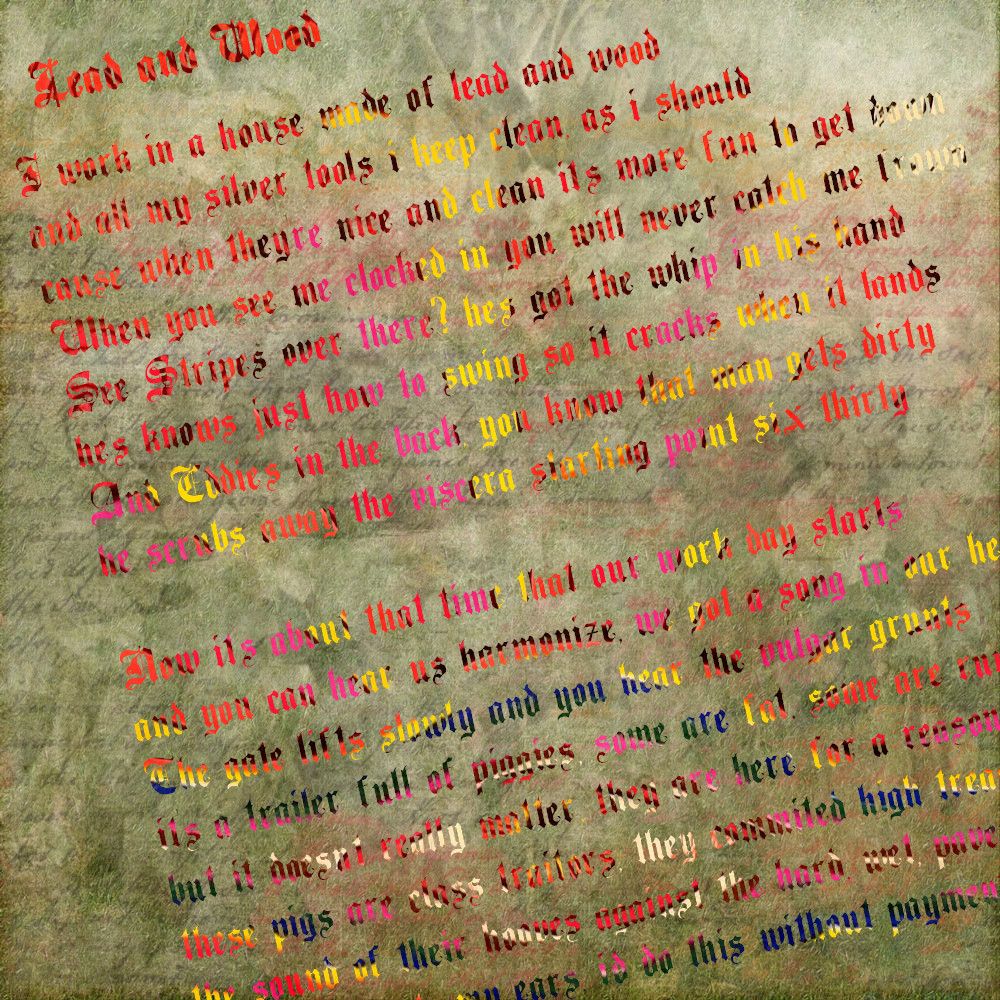 Lead and Wood
I work in a house made of lead and wood
and all my silver tools i keep clean, as i should
cause when theyre nice and clean its more fun to get down
When you see me clocked in you will never catch me frown
See Stripes over there? hes got the whip in his hand
hes knows just how to swing so it cracks when it lands
And Eddies in the back, you know that man gets dirty
he scrubs away the viscera starting point six thirty
Now its about that time that our work day starts
and you can hear us harmonize, we got a song in our he
The gate lifts slowly and you hear the vulgar grunts
its a trailer full of piggies, some are fat, some are run
but it doesnt really matter, they are here for a reason
these pigs are class traitors, they commited high trea
the sound of their hooves against the hard, wet, pave
my ears id do this without paymen